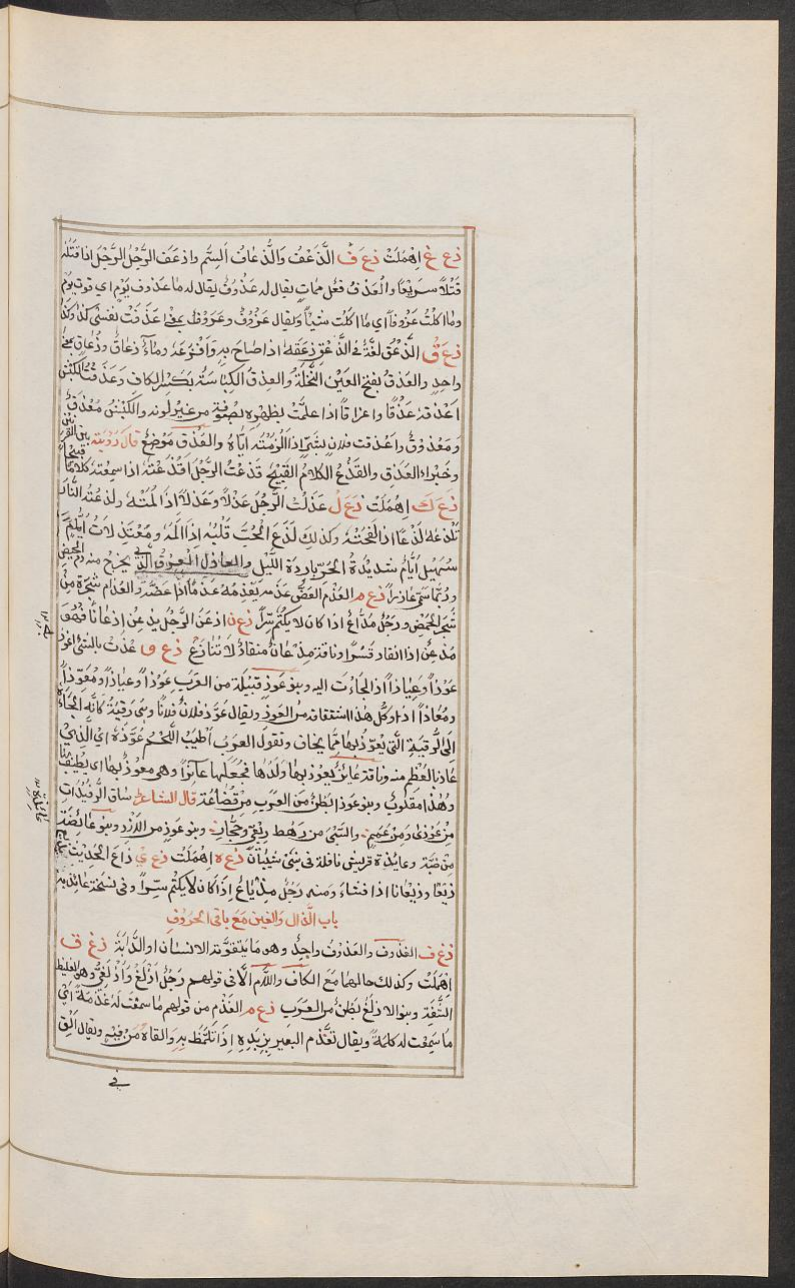 ذع غ اهملت ذع ف الذعف والذعاف السم واذعف الرجل الرجل اذا قتله
قتلا سريعا والعذف فعل ممات يقال له عذوف يقال له ما عذوف يوم اي قوت يوم
وما اكلت عزوفا اي ما اكلت شيئا ويقال عزوف وعروف بمعنى عذفت نفسي كذا وكذا
ذع ق الذعق لغة في الذعق زعقه اذا صاح به وافزعه وماء زعاق وذعاق بمعنى
واحد والعذق بفتح العين النخلة والعذق الكباسة بكسر الكاف وعذقت الكبش
اعذقه عذقا واعذاقا اذا علمت بظهره بصوفة من غير لونه والكبش معذق
ومعذوق واعذقت فلان بشيء اذا الزمته اياه والعذق موضع قال رؤبة بين القريين
وخبراء العذق والقذع الكلام القبيح قذعت الرجل اقذعته اذا سمعته كلاما قبيحا
ذع ك اهملت ذع ل عذلت الرجل عذلا وعذلا اذا لمته ولذعته النار
تلذعه لذعا اذا لفحته وكذلك لذع الحب قلبه اذا المه ومعتذلات ايام
سهيل ايام شديدة الحر باردة الليل والعاذل العرق الذي يخرج منه دم الحيض
وربما سمي عاذرا ذع م العذم العض عذمه يعذمه عذما اذا عضه والعذام شجرة من
شجر الحمض ورجل مذاع اذا كان لا يكتم سرا ذع ن اذعن الرجل يذعن اذعانا فهو
مذعن اذا انقاد قسرا وناقة مذعان منقادة لا تنازع ذع و عذت بالشيء اعوذ
عوذا وعياذا اذا لجات اليه وبنو عوذ قبيلة من العرب عوذا وعياذا ومعوذا
ومعاذا وكل هذا اشتقاقه من العوذ ويقال عوذ فلان فلانا وهي رقية كانه الجاه
الى الرقية التي يعوذ بها مما يخاف وتقول العرب اطيب اللحم عوذه اي الذي
عاذ بالعظم منه وناقة عائذ يعوذ بها ولدها فجعلها عائذا وهي معوذ بها اي يطيف بها
وهذا مقلوب وبنو عوذ بطن من العرب من قضاعة قال الشاعر ساق الرفيدات
من عوذى ومن عمم والسبي من رهط ربعي وحجار وبنو عوذ من الازد وبنو عائذة
من ضبة وعايذة قريش نافلة في بني شيبان ذع ه اهملت ذع ي ذاع الحديث يذيع
ذيعا وذيعانا اذا فشا ومنه رجل مذياع اذا كان لا يكتم سرا وفي نسخة عائذ به
باب الذال والغين مع باقي الحروف
ذغ ف الغذوف والعذوف واحد وهو ما يتقوته الانسان او الدابة ذغ ق
اهملت وكذلك حالهما مع الكاف واللام الا في قولهم رجل اذلغ واذلغي وهو الغليظ
الشفة وبنو الاذلغ بطن من العرب ذغ م الغذم من قولهم ما سمعت له غذمة اي
ما سمعت له كلمة ويقال تغذم البعير بزبده اذا تلمظ به والقاه من فيه ويقال الق
في